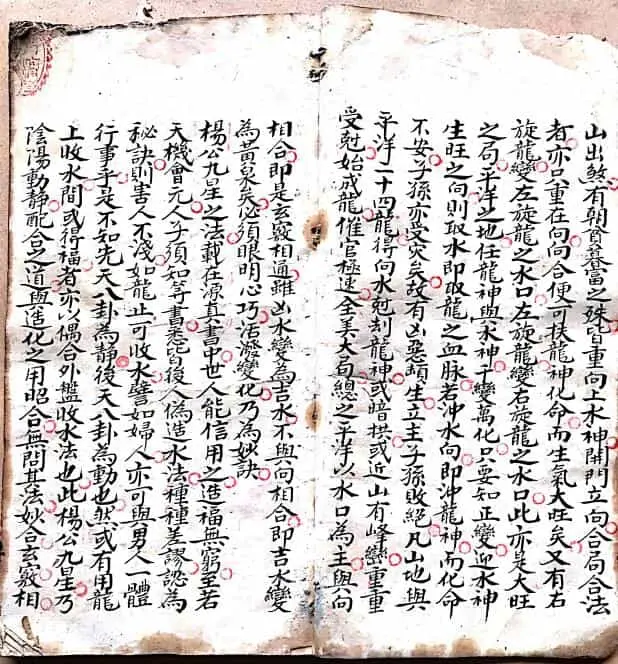 山出煞有朝貧暮富之殊皆重向上水神開門立向合局合法
者亦只重在向向合便可扶龍神化命而生氣大旺矣又有右
旋龍變左旋龍之水口左旋龍變右旋龍之水口此亦是大旺
之局平洋之地任龍神與水神千變萬化只要知正變迎水神
生旺之向則取水即取龍之血脉若沖水向即沖龍神而化命
不安子孫亦受災矣故有凶惡頑生立主子孫敗絕凡山地與
平洋二十四龍得向水尅刦龍神或暗拱或近山有峰巒重重
受尅始成龍催官極速全美大局總之平洋以水口為主與向
相合即是玄竅相通雖凶水變為吉水不與向相合即吉水變
為黃泉矣必須眼明心巧活潑變化乃為妙訣
楊公九星之法載在源真書中世人能信用之造福無窮至若
天機會元人子須知等書悉皆後人偽造水法種種差謬認為
秘訣則害人不淺如龍止可收水譬如婦人亦可與男人一體
行事乎是不知先天八卦為靜後天八卦為動也然或有用龍
上收水間或得福者亦以偶合外盤收水法也此楊公九星乃
陰陽動靜配合之道與造化之用昭合無間其法妙合玄竅相